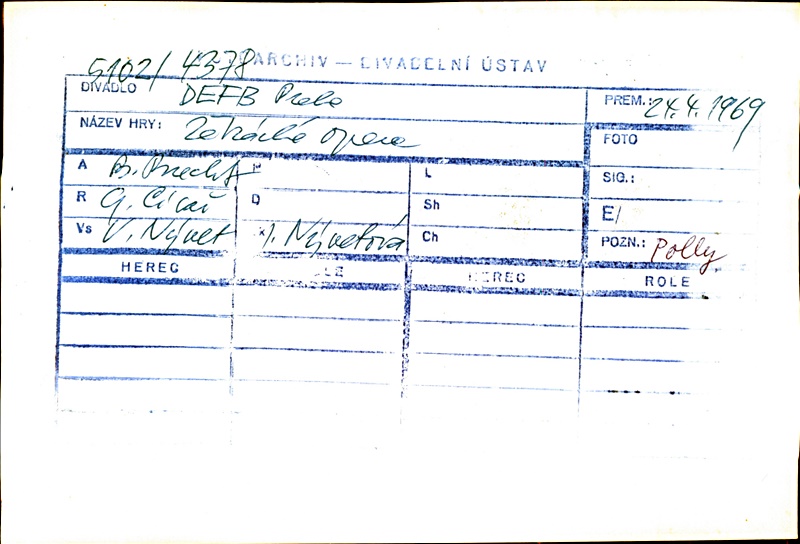 5102/4378 ARCHIV — DIVADELNÍ ÚSTAV
DIVADLO DEFB PREM.: 24.4.1969
NÁZEV HRY: Žebrácká opera FOTO
A B. Brecht L SIG.:
R Q Sh E/
Vs V. Nývlt Nývltová Ch POZN.: Polly
HEREC HEREC ROLE